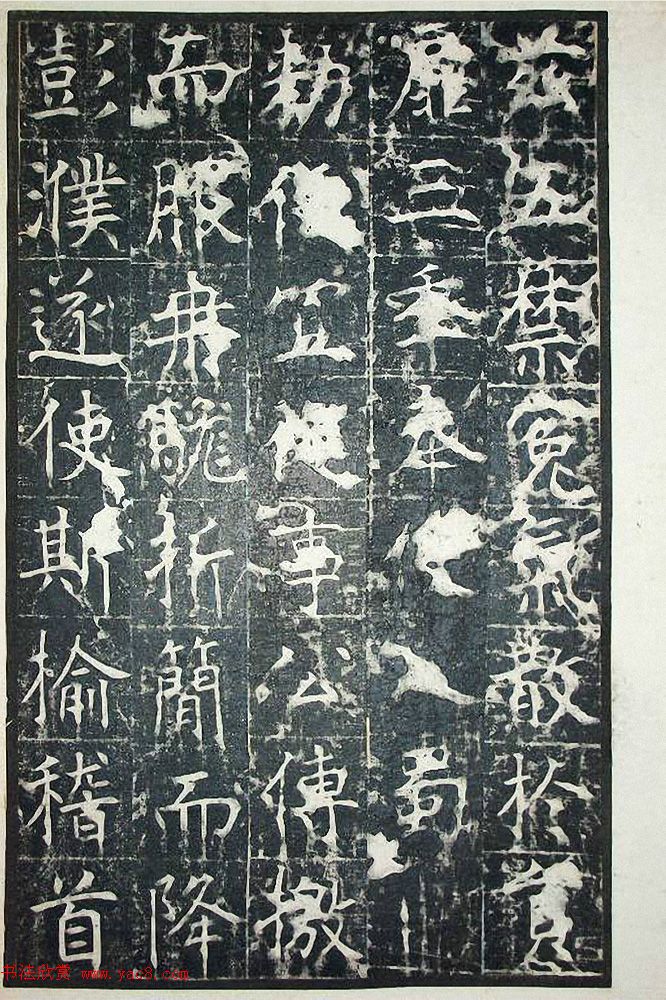 茲五禁冤氣散於寰
扉三年奉入蜀
勑宜事公傳檄
而服冉駹折簡而降
彭濮遂使斯榆稽首
书法欣赏 www.yac8.com